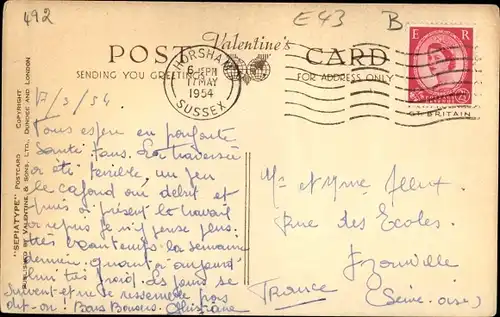 492
E43 B
Valentine's
POST CARD
SENDING YOU GREETINGS
FOR ADDRESS ONLY
HORSHAM
6-PM
17 MAY
1954
SUSSEX
E R
GT BRITAIN
"SEPIATYPE" POSTCARD COPYRIGHT
PUBLISHED BY VALENTINE & SONS, LTD., DUNDEE AND LONDON
17/5/54
Vous espère en parfaite
Santé tous. La traversée
a été terrible, un peu
le cafard au début et
puis à présent le travail
a repris je n'y pense plus.
très beau temps la semaine
dernière quant à aujourd'
hui très froid. Les jours se
suivent et ne se ressemblent pas
dit-on! Bons Baisers Ghislaine
Mr et Mme
Rue des Ecoles
France
(Seine-oise)